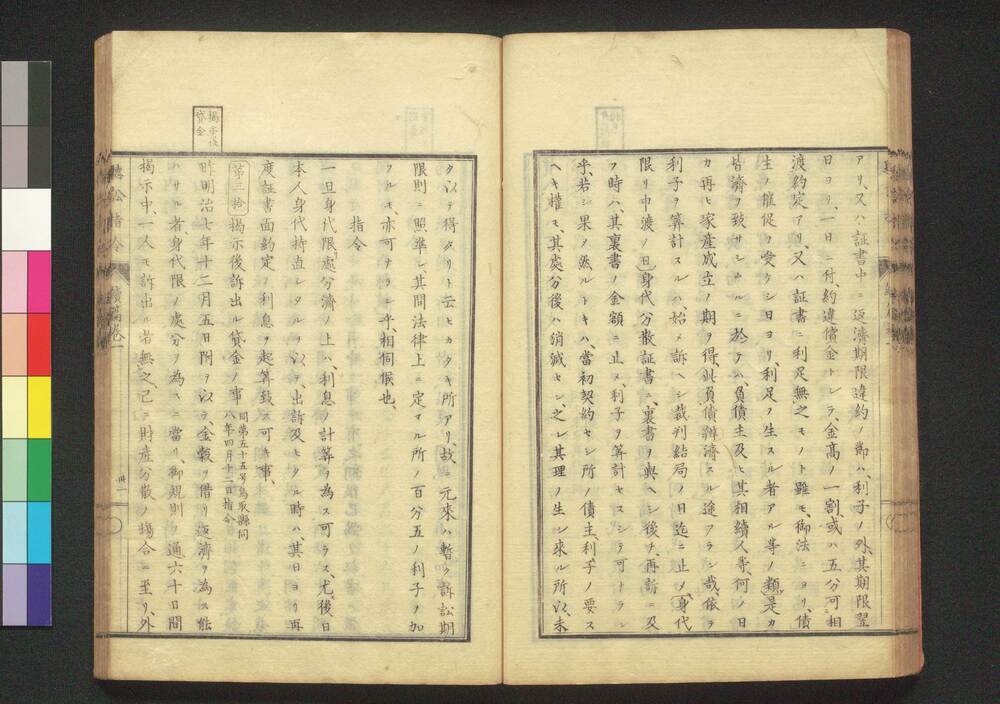 アリ、又ハ証書中ニ返済期限違約ノ節ハ、利子ノ外、其期限翌
日ヨリ、一日ニ付、約違償金トシテ、金高ノ一割、或ハ五分可相
渡約定アリ、又ハ証書ニ利足無之モノト雖モ、御法ニヨリ、債
主ノ催促ヲ受ケシ日ヨリ、利足ヲ生スル者アル等ノ類、是カ
皆済ヲ致サシムルニ於テハ、負債主及ヒ其相続人等、何ノ日
カ再ヒ家産成立ノ期ヲ得、此負債辦済スル途アラシ哉、依テ
利子ヲ算計スルハ始メ訴ヘシ裁判結局ノ日迄ニ止メ、身代
限リ申渡ノ日、身代分散証書ニ、裏書ヲ與ヘシ後チ、再訴ニ及
フ時ハ、其裏書ノ金額ニ止メ、利子ヲ算計セスシテ可ナラン
乎、若シ果ノ然ルトキハ、當初契約セシ所ノ債主、利子ノ要ス
ヘキ權モ、其處分後ハ消滅セン、之レ其理ノ生シ来ル所以、未
タ以テ得タリト云ヒカタキ所アリ、故ニ元來ハ暫ク訴訟期
限則ニ照準シ、其間法律上ニ定マル所ノ百分五ノ利子ヲ加
フルモ、亦可ナランニ乎、相伺候也、
指令
一旦身代限處分濟ノ上ハ、利息ノ計筭ヲ為ス可ラス、尤、後日
本人身代持直シタルヲ以テ、出訴及ヒタル時ハ、其日ヨリ再
度証書面約定ノ利息ヲ起筭致ス可キ事、
第三拾
揭示後訴出ル貸金ノ事
同第五十五号鳥取縣伺
八年四月十二日指令
昨明治七年十二月五日附ヲ以テ、金穀ヲ借リ返濟ヲ為ス能
ハサル者、身代限ノ処分ヲ為スニ當リ、御規則ノ通、六十日間
揭示中、一人モ訴出ル者無之、已ニ財産分散ノ場合ニ至リ、外
揭示後
貸金
聽訟指令
續編卷一
卅一